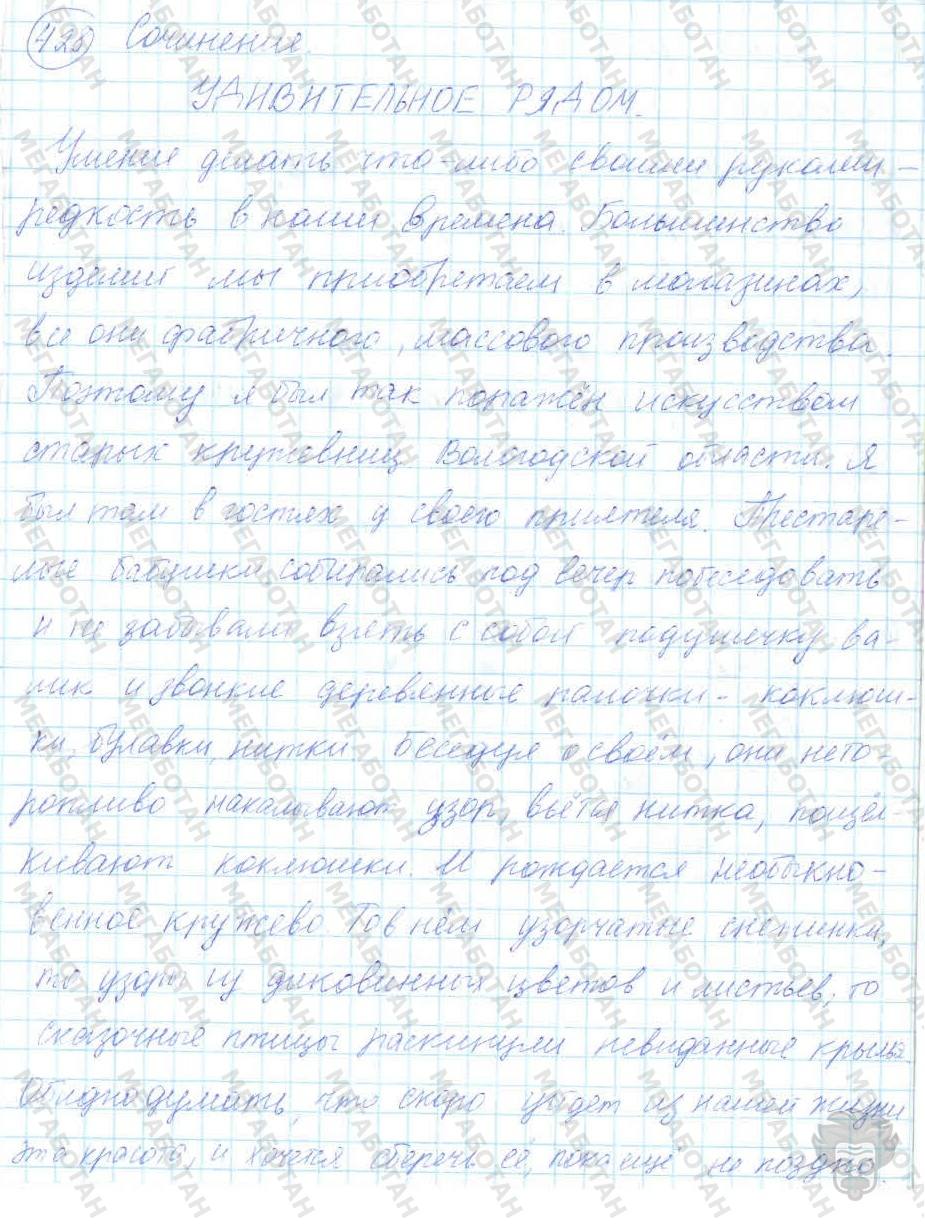 428 Сочинение.
УДИВИТЕЛЬНОЕ РЯДОМ.
Умение делать что-либо своими руками –
редкость в наши времена. Большинство
изделий мы приобретаем в магазинах,
все они фабричного, массового производства.
Поэтому я был так поражён искусством
старых кружевниц Вологодской области. Я
был там в гостях у своего приятеля. Престаре-
лые бабушки собирались под вечер побеседовать
и не забывали взять с собой подушечку ва-
лик и звонкие деревянные палочки - коклюш-
ки, булавки, нитки. Беседуя о своём, они нето-
ропливо накалывают узор, вьётся нитка, пощёл-
кивают коклюшки. И рождается необыкно-
венное кружево. То в нём узорчатые снежинки,
то узоры из диковинных цветов и листьев, то
сказочные птицы раскинули невиданные крылья.
Обидно думать, что скоро уйдет из нашей жизни
эта красота, и хочется сберечь её, пока ещё не поздно.
МЕГАБОТАН